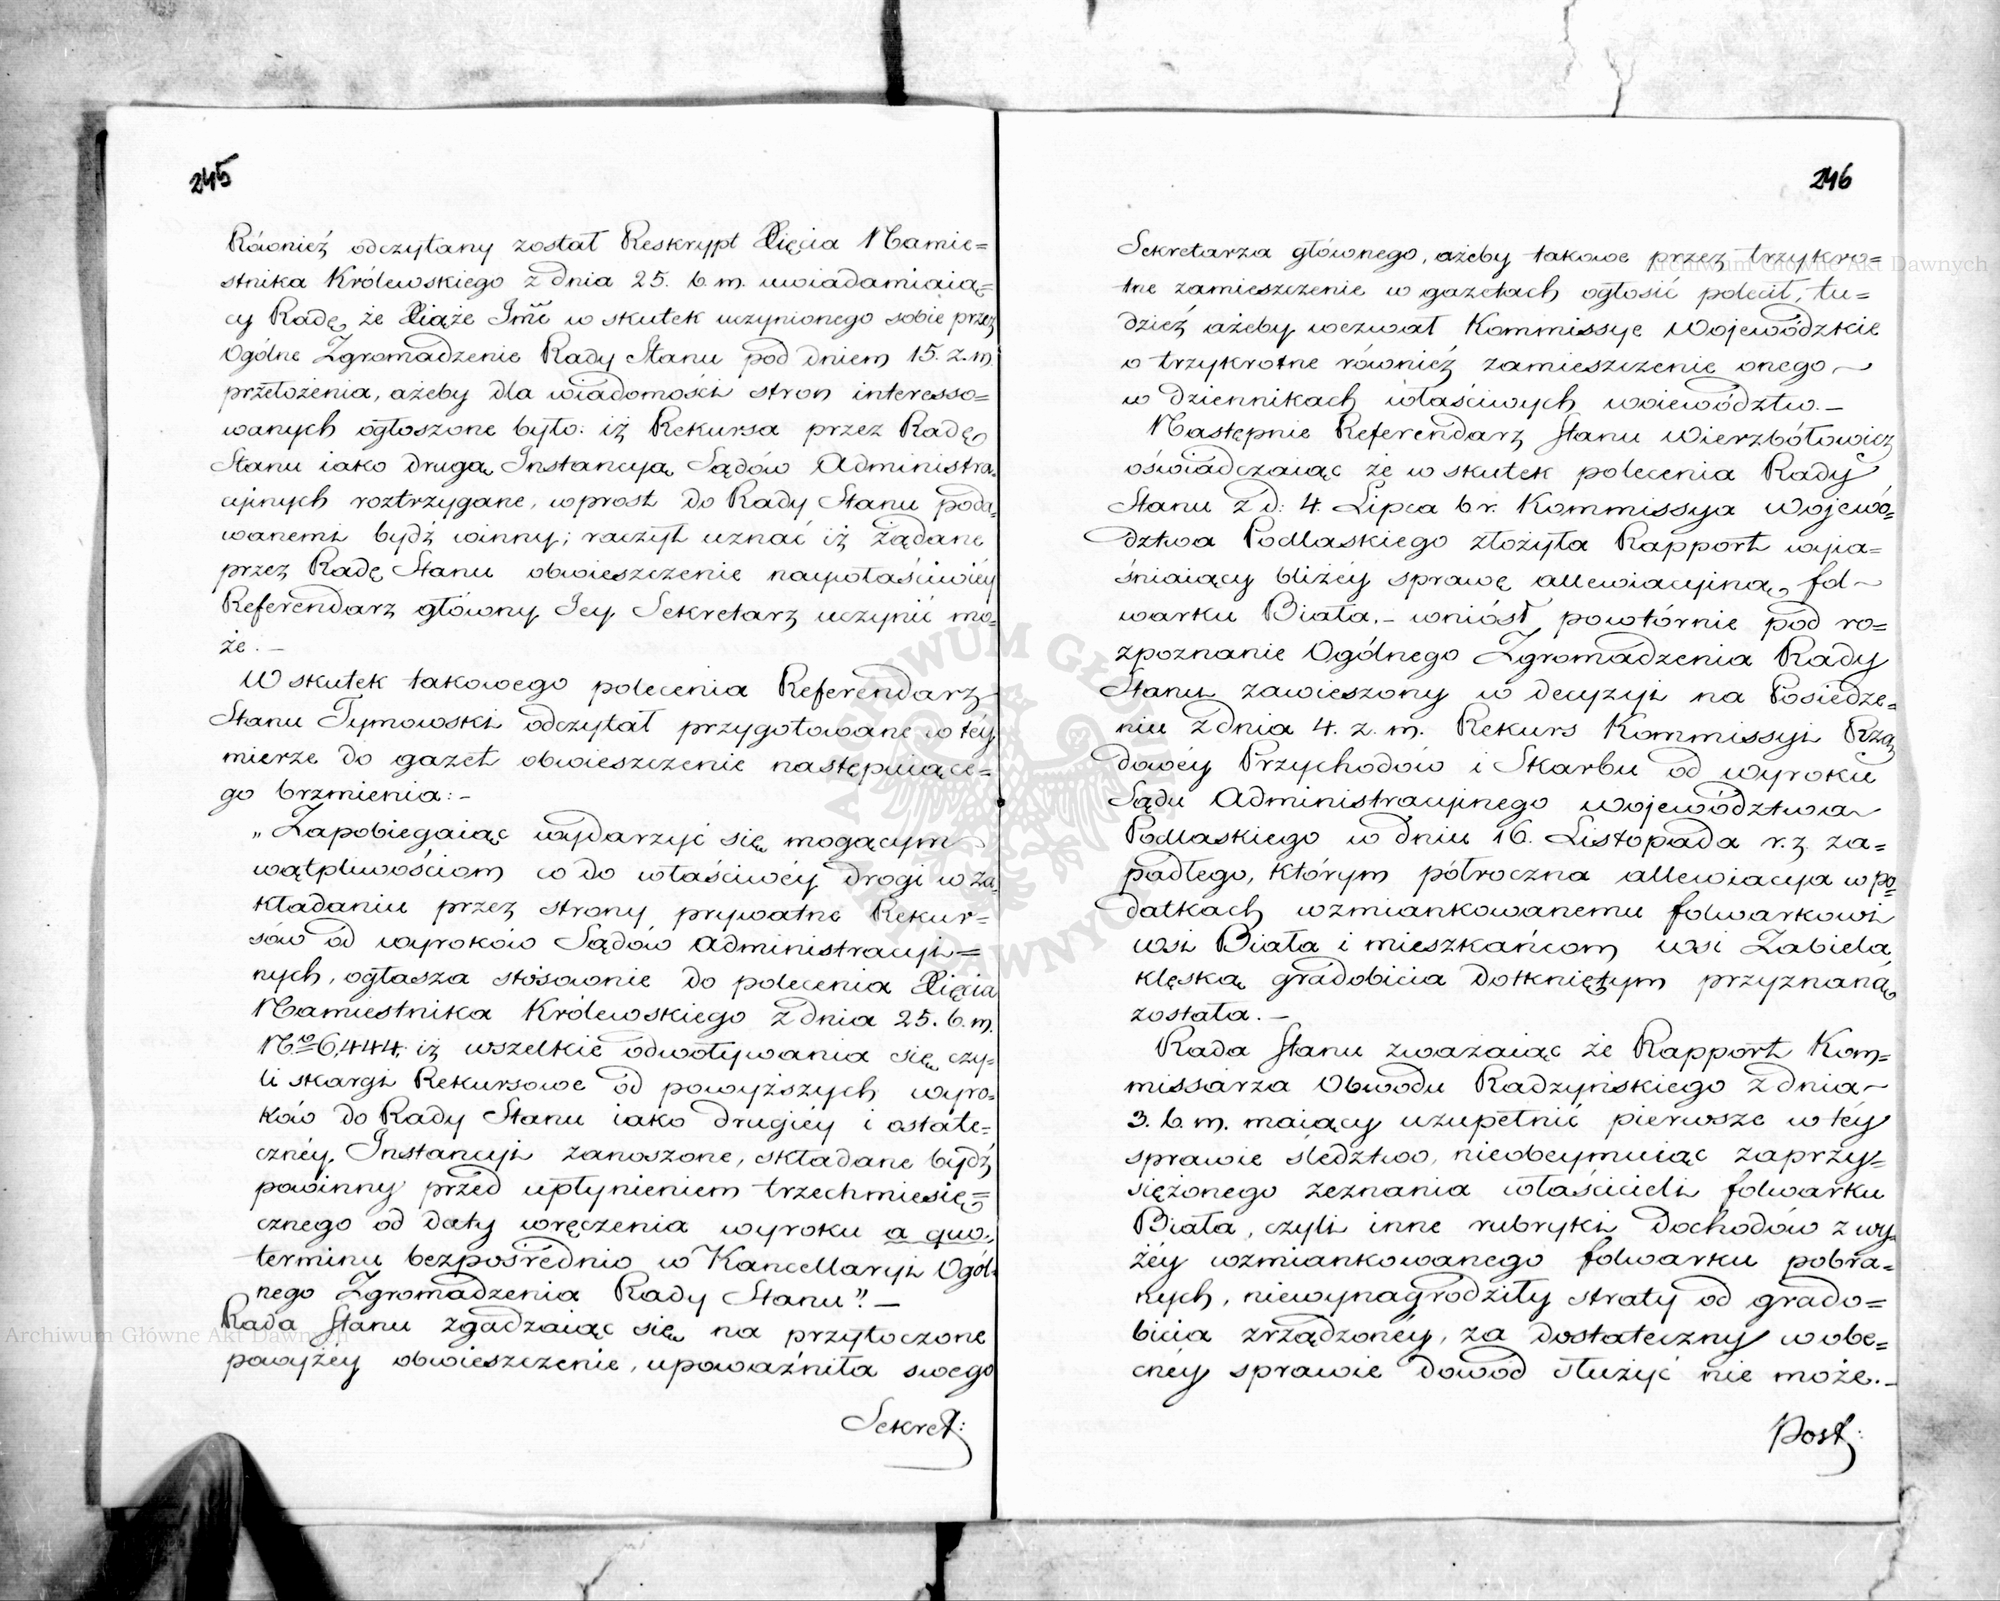 245
Również odczytany został Reskrypt Xięcia Namie=
stnika Królewskiego z dnia 25. b. m. uwiadamiaią=
cy Radę, że Xiąże Jmć w skutek uczynionego sobie przez
Ogólne Zgromadzenie Rady Stanu pod dniem 15. z. m.
przełożenia, ażeby dla wiadomości stron interesso=
wanych ogłoszone było: iż Rekursa przez Radę
Stanu iako drugą Instancyą Sądów Administra=
cyinych roztrzygane, wprost do Rady Stanu poda=
wanemi bydź winny; raczył uznać iż żądane
przez Radę Stanu obwieszczenie naywłaściwiéy
Referendarz główny Jey Sekretarz uczynić mo=
że. —
W skutek takowego polecenia Referendarz
Stanu Tymowski odczytał przygotowane w téy
mierze do gazet obwieszczenie następuiące=
go brzmienia: —
„Zapobiegaiąc wydarzyć się mogącym
wątpliwościom co do właściwéy drogi w za=
kładaniu przez strony prywatne Rekur=
sów od wyroków Sądów Administracyi=
nych, ogłasza stósownie do polecenia Xięcia
Namiestnika Królewskiego z dnia 25. b. m.
Nro 6,444. iż wszelkie odwoływania się czy=
li skargi Rekursowe od powyższych wyro=
ków do Rady Stanu iako drugiéy i ostate=
cznéy Instancyi zanoszone, składane bydź
powinny przed upłynieniem trzechmiesię=
cznego od daty wręczenia wyroku a quo,
terminu bezpośrednio w Kancellaryi Ogól=
nego Zgromadzenia Rady Stanu". —
Rada Stanu zgadzaiąc się na przytoczone
powyżéy obwieszczenie, upoważniła swego
Sekret:
246
Sekretarza głównego, ażeby takowe przez trzykro=
tne zamieszczenie w gazetach ogłosić polecił, tu=
dzież ażeby wezwał Kommissye Wojewódzkie
o trzykrotne również zamieszczenie onego
w dziennikach właściwych województw. —
Następnie Referendarz Stanu Wierzbołowicz
oświadczaiąc że w skutek polecenia Rady
Stanu z d: 4. Lipca b r. Kommissya Wojewó=
dztwa Podlaskiego złożyła Rapport wyia=
śniaiący bliżéy sprawę allewiacyiną fol=
warku Biała. — wniósł powtórnie pod ro=
zpoznanie Ogólnego Zgromadzenia Rady
Stanu zawieszony w decyzyi na Posiedze=
niu z dnia 4. z. m. Rekurs Kommissyi Rzą=
dowéy Przychodów i Skarbu od wyroku
Sądu Administracyinego województwa
Podlaskiego w dniu 16. Listopada r. z. za=
padłego, którym półroczna allewiacya w po=
datkach wzmiankowanemu folwarkowi
wsi Biała i mieszkańcom wsi Zabiela
klęską gradobicia dotkniętym przyznaną
została. —
Rada Stanu zważaiąc że Rapport Kom=
missarza Obwodu Radzyńskiego z dnia
3. b. m. maiący uzupełnić pierwsze w téy
sprawie śledztwo, nieobeymuiąc zaprzy=
siężonego zeznania właścicieli folwarku
Biała, czyli inne rubryki dochodów z wy=
żéy wzmiankowanego folwarku pobra=
nych, niewynagrodziły straty od grado=
bicia zrządzonéy, za dostateczny w obe=
cnéy sprawie dowód służyć nie może. —
Post:
Archiwum Główne Akt Dawnych
Archiwum Główne Akt Dawnych